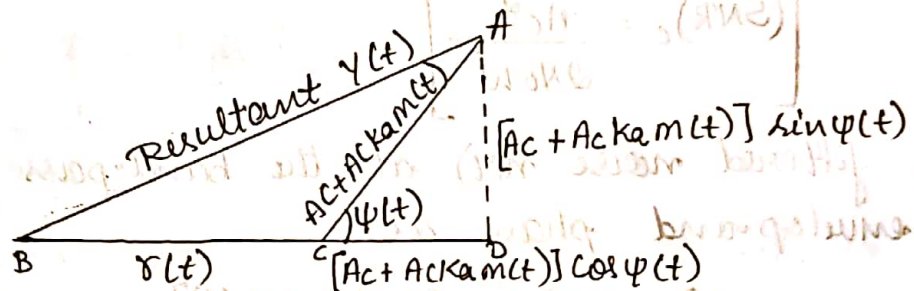 A
Resultant y(t)
Ac+Ackam(t)
[Ac + Ackam(t)] sinψ(t)
ψ(t)
B
r(t)
C
D
[Ac + Ackam(t)] cosψ(t)